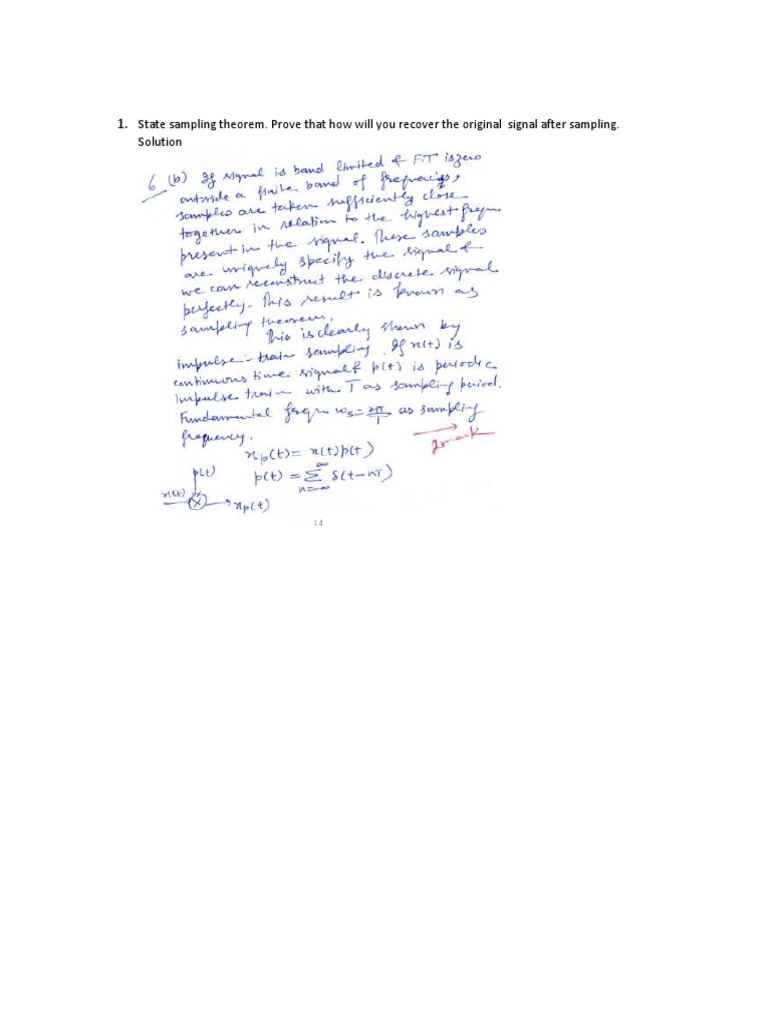 1. State sampling theorem. Prove that how will you recover the original signal after sampling.
Solution
6 (b) If signal is band limited & F.T is zero
outside a finite band of frequencies,
samples are taken sufficiently close
together in relation to the highest frequ
present in the signal. These samples
are uniquely specify the signal &
we can reconstruct the discrete signal
perfectly. This result is known as
sampling theorem.
This is clearly shown by
impulse-train sampling. If x(t) is
continuous time signal & p(t) is periodic
Impulse train with T as sampling period.
Fundamental frequ ωs = 2π/T as sampling
frequency.
2 mark
xp(t) = x(t)p(t)
p(t) = ∞Σn=-∞ δ(t-nT)
p(t)
x(t) × xp(t)
14